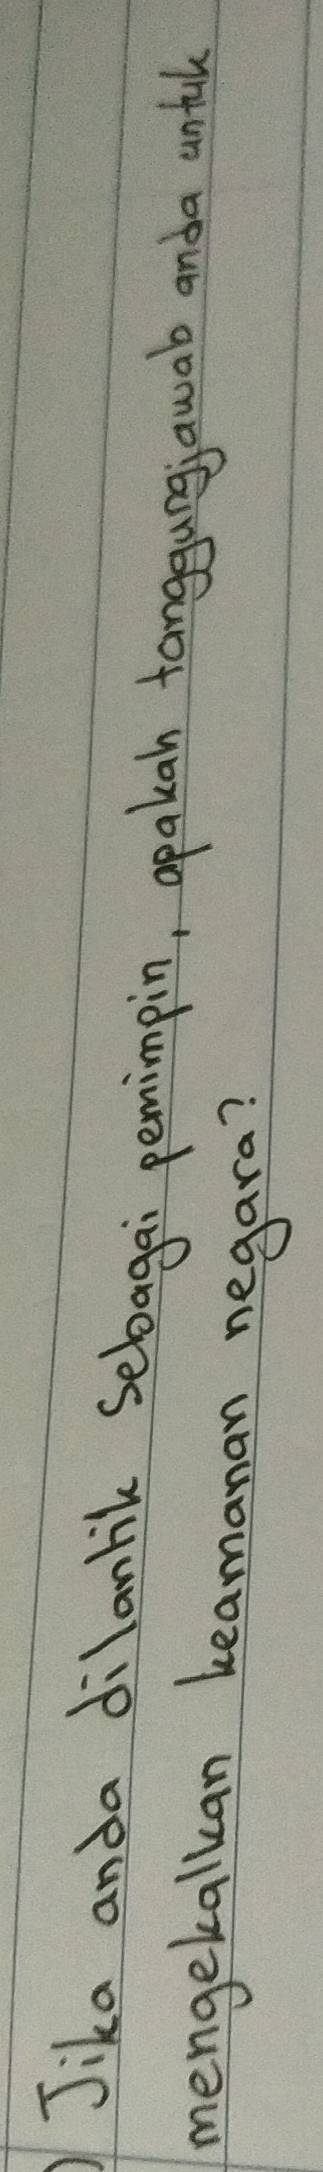 ) Jika anda dilantik sebagai pemimpin, apakah tanggungjawab anda untuk
mengekalkan keamanan negara?